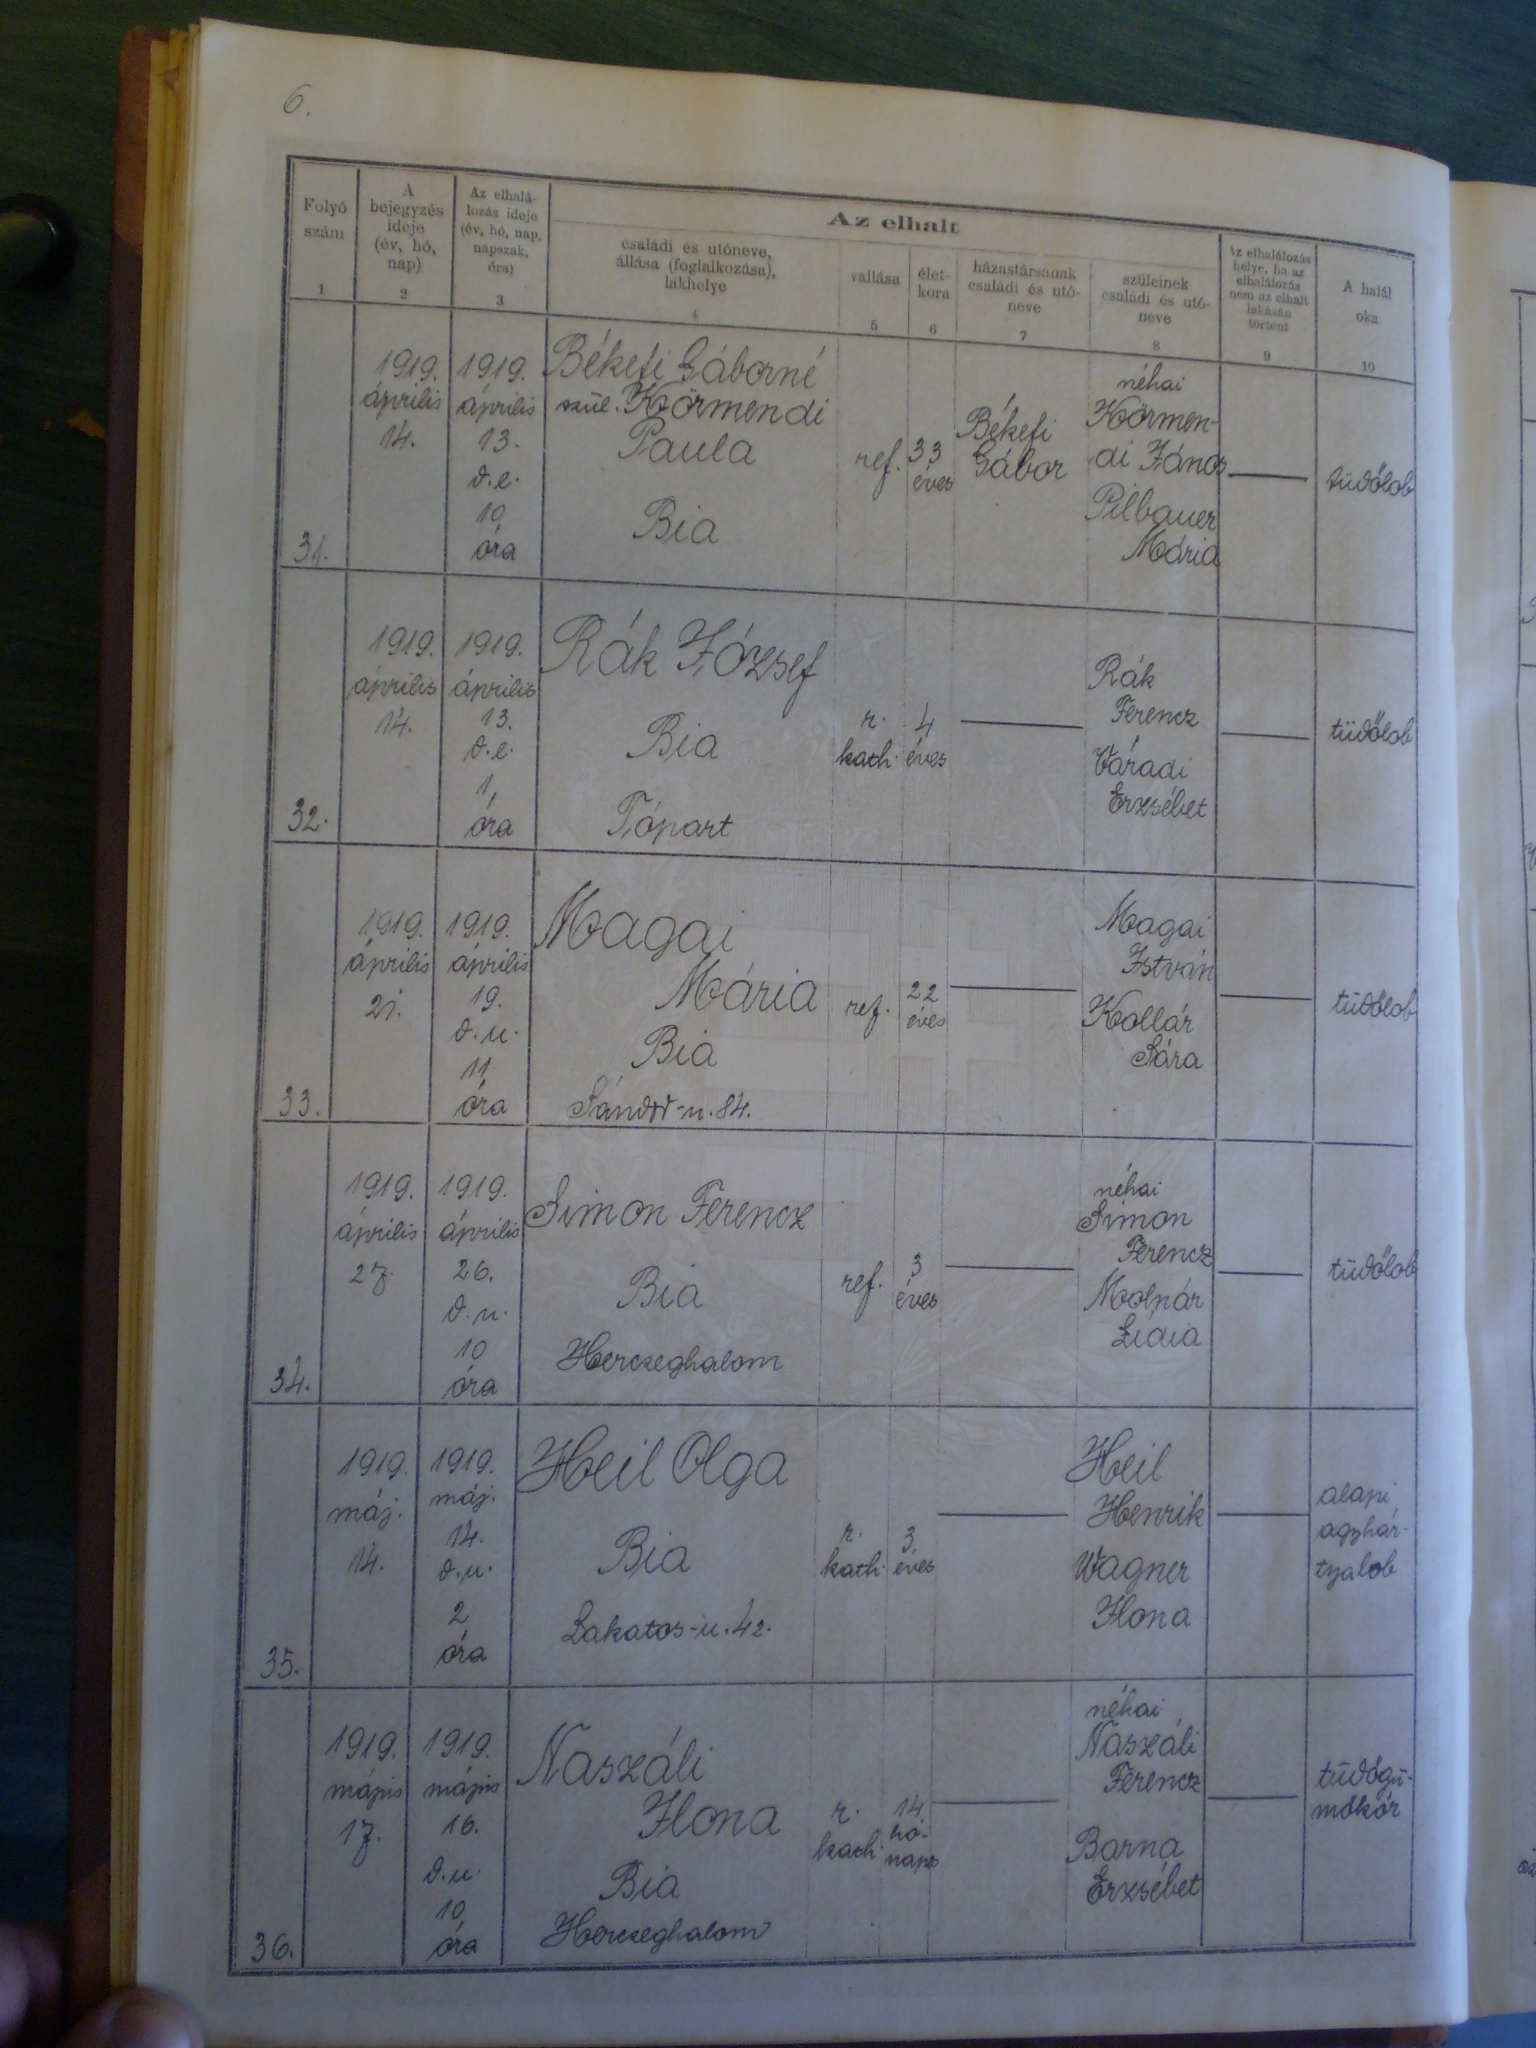 6.
Az elhalt
Folyó
szám
1
A
bejegyzés
ideje
(év, hó,
nap)
2
Az elhalá-
lozás ideje
(év, hó, nap,
napszak,
óra)
3
családi és utóneve,
állása (foglalkozása),
lakhelye
4
vallása
5
élet-
kora
6
házastársának
családi és utó-
neve
7
szüleinek
családi és utó-
neve
8
Az elhalálozás
helye, ha az
elhalálozás
nem az elhalt
lakásán
történt
9
A halál
oka
10
31.
1919.
április
14.
1919.
április
13.
d.e.
10
óra
Békefi Gáborné
szül. Körmendi
Paula
Bia
ref.
33
éves
Békefi
Gábor
néhai
Körmen-
di János
Pilbauer
Mária
tüdőlob
32.
1919.
április
14.
1919.
április
13.
d.e.
1,
óra
Rák József
Bia
Tópart
r.
kath.
4
éves
Rák
Ferencz
Váradi
Erzsébet
tüdőlob
33.
1919.
április
21.
1919.
április
19.
d.u.
11
óra
Magai
Mária
Bia
Sándor-u. 84.
ref.
22
éves
Magai
István
Kollár
Sára
tüdőlob
34.
1919.
április
27.
1919.
április
26.
d.u.
10
óra
Simon Ferencz
Bia
Herczeghalom
ref.
3
éves
néhai
Simon
Ferencz
Molnár
Lidia
tüdőlob
35.
1919.
máj.
14.
1919.
máj.
14.
d.u.
2
óra
Heil Olga
Bia
Lakatos-u. 42.
r.
kath.
3
éves
Heil
Henrik
Wagner
Ilona
alapi
agyhár-
tyalob
36.
1919.
május
17.
1919.
május
16.
d.u.
10
óra
Naszáli
Ilona
Bia
Herczeghalom
r.
kath.
14
hó-
napos
néhai
Naszáli
Ferencz
Barna
Erzsébet
tüdőgü-
mőkór